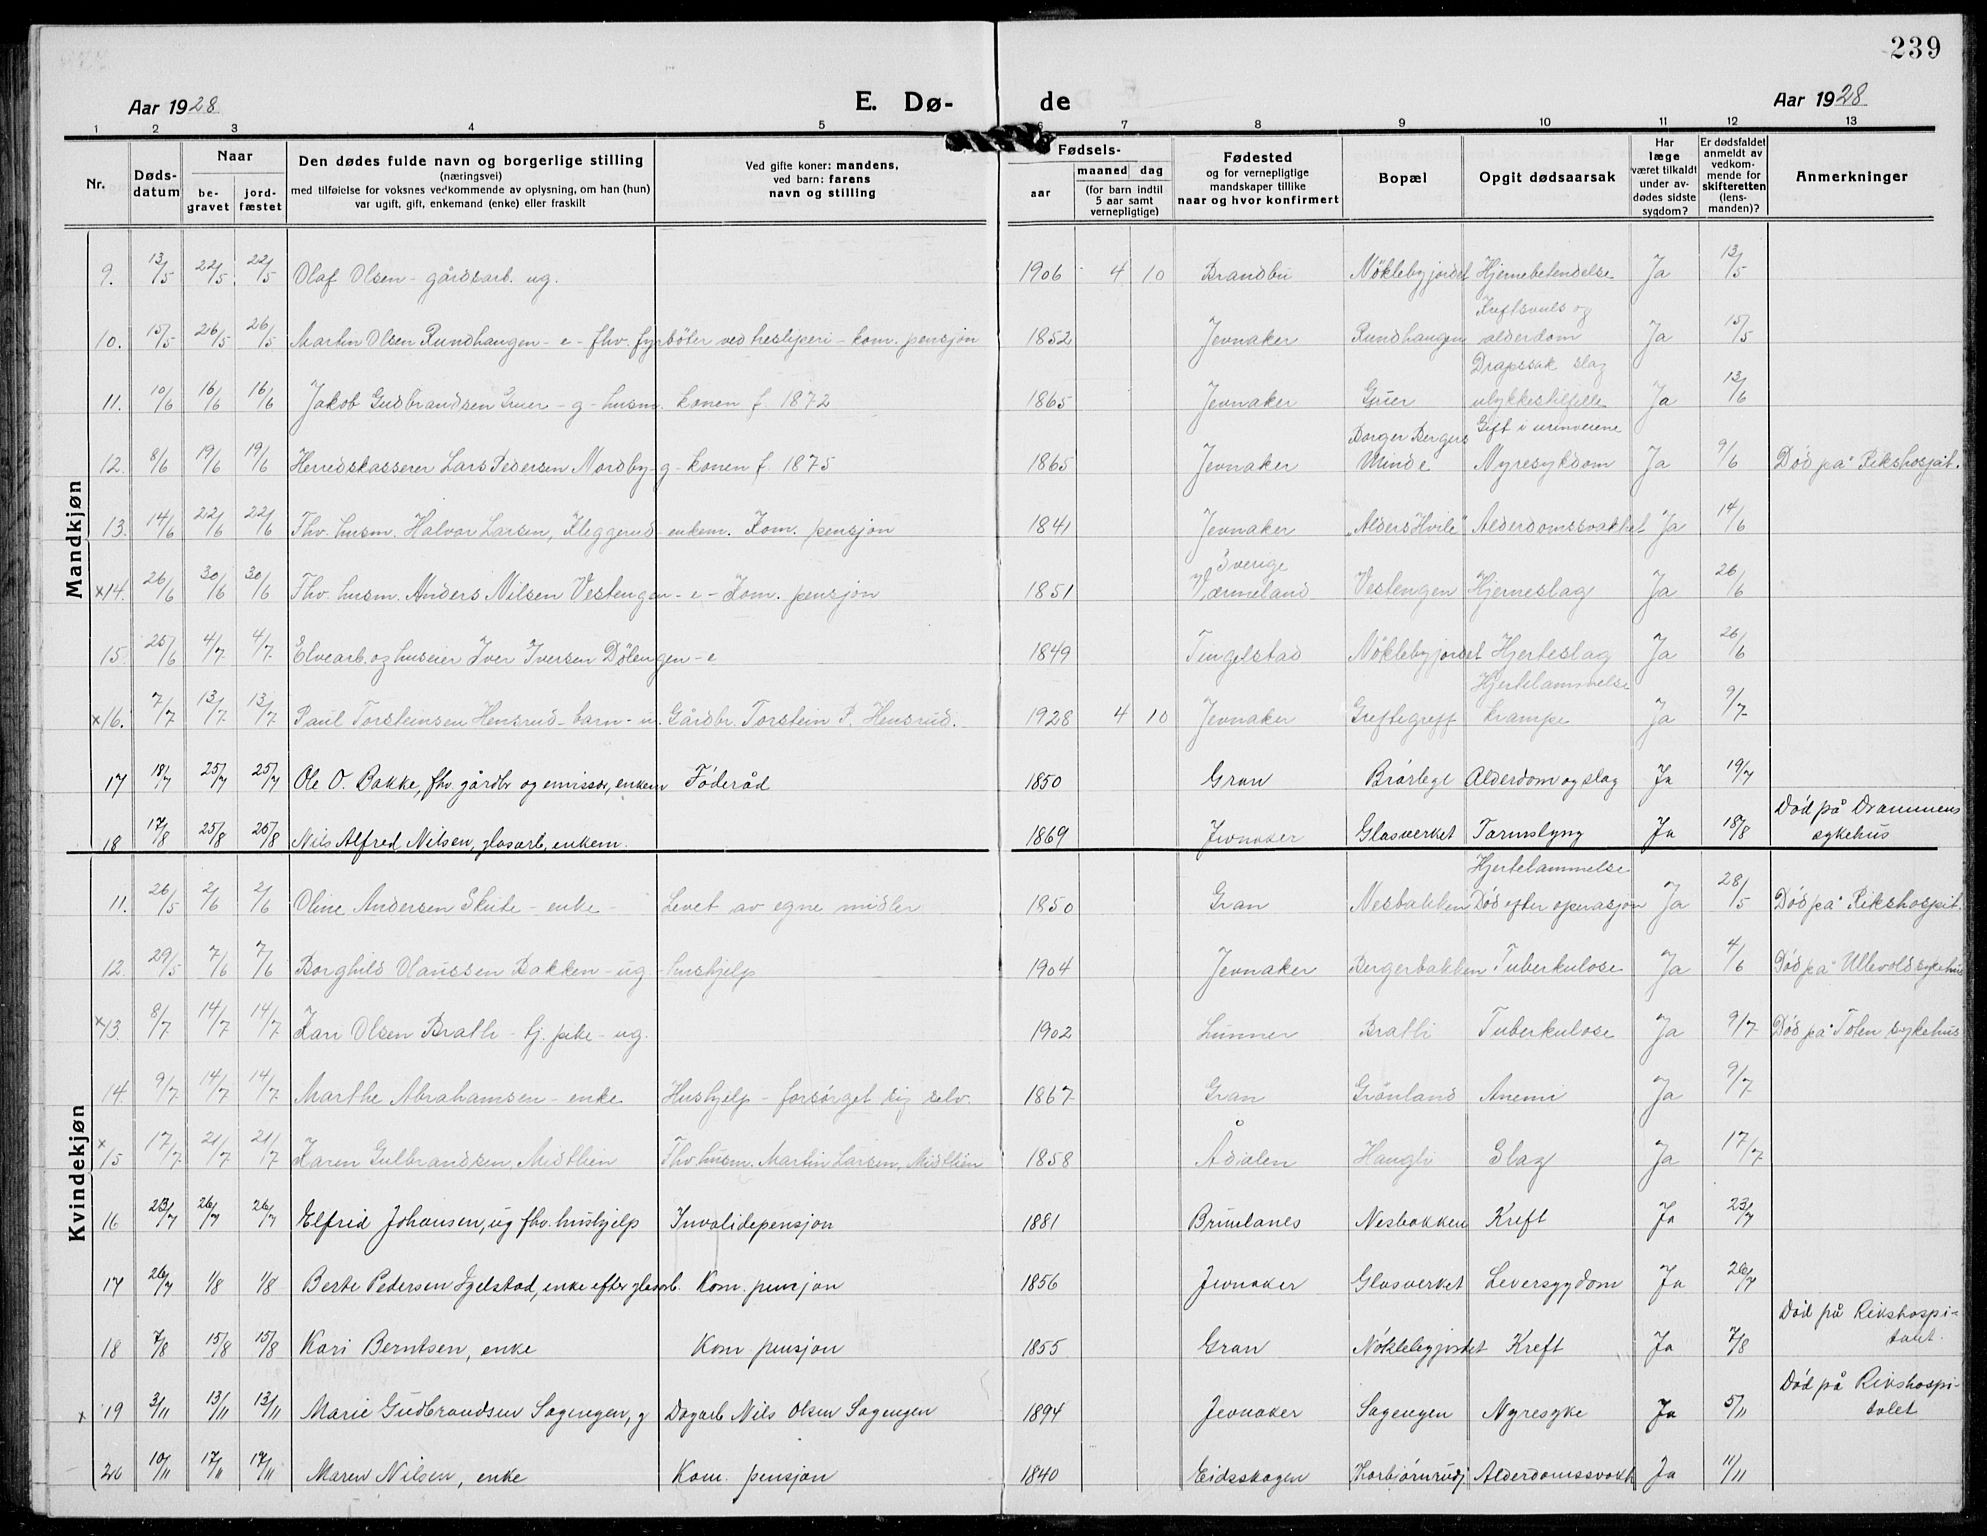 239
Aar 1928 E. Dø- de Aar 1928
1 2 3 4 5 6 7 8 9 10 11 12 13
Nr.
Døds-
datum
Naar
be-
gravet
jord-
fæstet
Den dødes fulde navn og borgerlige stilling
(næringsvei)
med tilføielse for voksnes vedkommende av oplysning, om han (hun)
var ugift, gift, enkemand (enke) eller fraskilt
Ved gifte koner: mandens,
ved barn: farens
navn og stilling
Fødsels-
aar
maaned dag
(for barn indtil
5 aar samt
vernepligtige)
Fødested
og for vernepligtige
mandskaper tillike
naar og hvor konfirmert
Bopæl
Opgit dødsaarsak
Har
læge
været tilkaldt
under av-
dødes sidste
sygdom?
Er dødsfaldet
anmeldt av
vedkom-
mende for
skifteretten
(lens-
manden)?
Anmerkninger
Mandkjøn
9. 13/5 22/5 22/5 Olaf Olsen - gårdsarb. ug. 1906 4 10 Brandbu Nøklebyjordet Hjernebetendelse Ja 13/5
Kreftsvuls og
10. 15/5 26/5 26/5 Martin Olsen Rundhaugen - e - fhv. fyrbøter ved tresliperi - kom. pensjon 1852 Jevnaker Rundhaugen alderdom Ja 15/5
Drapssak slag
11. 10/6 16/6 16/6 Jakob Gudbrandsen Gruer - g - husm. konen f. 1872 1865 Jevnaker Gruer ulykkestilfelle Ja 13/6
Borger Bergers Gift i urinveiene
12. 8/6 19/6 19/6 Herredskasserer Lars Pedersen Nordby - g - konen f. 1875 1865 Jevnaker Minde Nyresykdom Ja 9/6 Død på Rikshospit.
13. 14/6 22/6 22/6 Fhv. husm. Halvor Larsen, Kleggerud - enkem. Kom. pensjon 1841 Jevnaker "Alders Hvile" Alderdomssvakhet Ja 14/6
Sverige
x14. 26/6 30/6 30/6 Fhv. husm. Anders Nilsen Vestengen - e - Kom. pensjon 1851 Værmeland Vestengen Hjerneslag Ja 26/6
15. 25/6 4/7 4/7 Elvearb. og huseier Iver Iversen Dølengen - e 1849 Tingelstad Nøklebyjordet Hjerteslag Ja 26/6
Hjertelammelse
x16. 7/7 13/7 13/7 Paul Torsteinsen Hensrud - barn - u. Gårdbr. Torstein P. Hensrud. 1928 4 10 Jevnaker Greftegreff krampe Ja 9/7
17 18/7 25/7 25/7 Ole O. Bakke, fhv. gårdbr og emissær, enkem Føderåd 1850 Gran Brørlege Alderdom og slag Ja 19/7
Død på Drammens
18 17/8 25/8 25/8 Nils Alfred Nilsen, glasarb, enkem. 1869 Jevnaker Glasverket Tarmslyng Ja 18/8 sykehus
Kvindekjøn
Hjertelammelse
11. 26/5 2/6 2/6 Oline Andersen Skute - enke - Levet av egne midler 1850 Gran Nesbakken Død efter operasjon Ja 28/5 Død på Rikshospit.
12. 29/5 7/6 7/6 Borghild Olaussen Bakken - ug - hushjelp 1904 Jevnaker Bergerbakken Tuberkulose Ja 4/6 Død på Ullevold sykehus
x13. 8/7 14/7 14/7 Kari Olsen Bratli - tj. pike - ug. 1902 Lunner Bratli Tuberkulose Ja 9/7 Død på Toten sykehus
14. 9/7 14/7 14/7 Marthe Abrahamsen - enke Hushjelp - forsørget sig selv. 1867 Gran Grønland Anemi Ja 9/7
x15 17/7 21/7 21/7 Karen Gulbrandsen Midtlien Fhv. husm. Martin Larsen, Midtlien 1858 Ådalen Haugli Slag Ja 17/7
16 23/7 26/7 26/7 Elfrid Johansen, ug fhv. hushjelp Invalidepensjon 1881 Brunlanes Nesbakken Kreft Ja 23/7
17 26/7 1/8 1/8 Berte Pedersen Igelstad, enke efter glasarb. Kom. pensjon 1856 Jevnaker Glasverket Leversygdom Ja 26/7
Død på Rikshospi-
18 7/8 15/8 15/8 Kari Berntsen, enke Kom pensjon 1855 Gran Nøklebyjordet Kreft Ja 7/8 talet.
Død på Rikshospi-
x 19 3/11 13/11 13/11 Marie Gudbrandsen Sagengen, g Dagarb Nils Olsen Sagengen 1894 Jevnaker Sagengen Nyresyke Ja 5/11 talet
20 10/11 17/11 17/11 Maren Nilsen, enke Kom. pensjon 1840 Eidsskogen Alderdomssvakh Ja 11/11